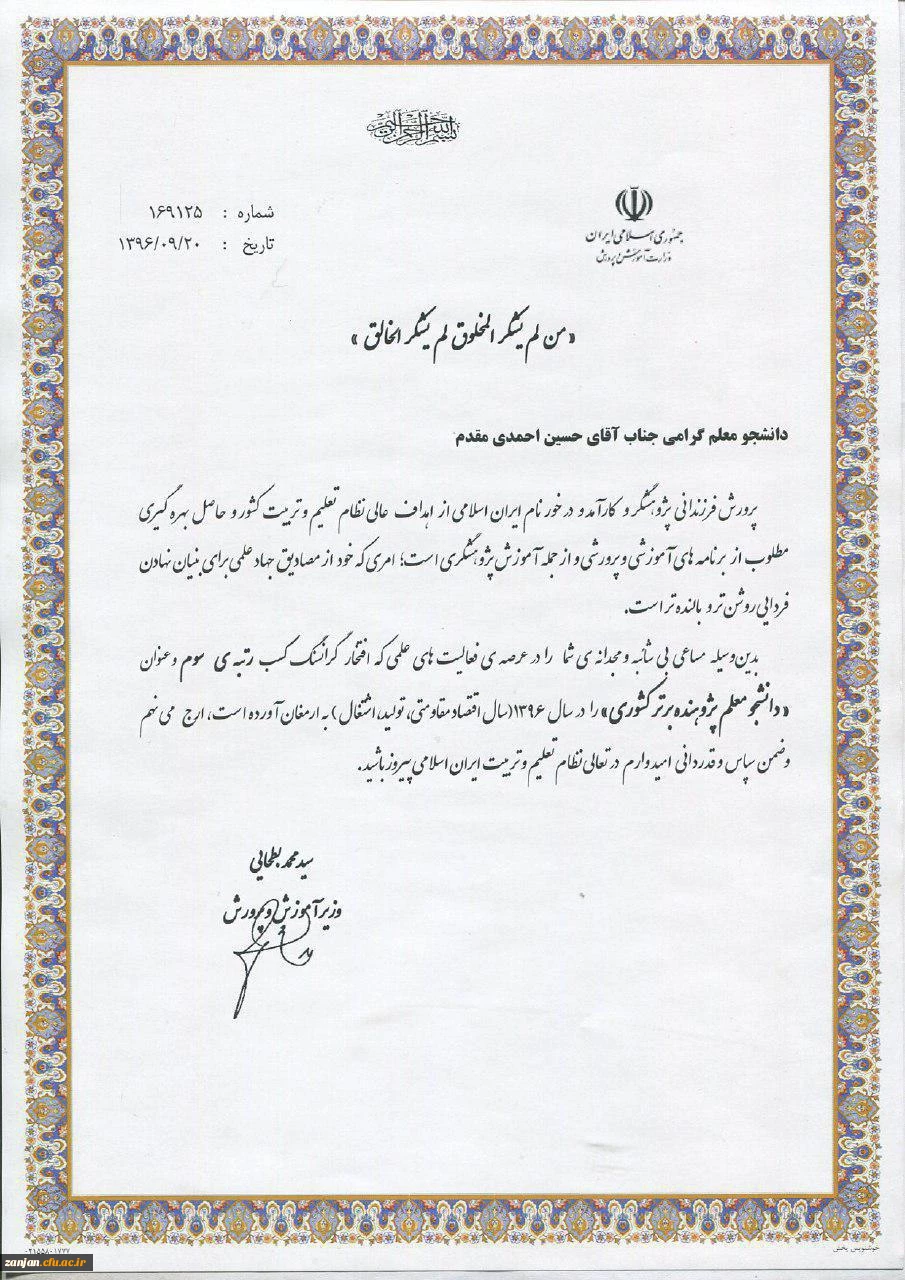 بسم الله الرحمن الرحیم
جمهوری اسلامی ایران
وزارت آموزش و پرورش
شماره : ۱۶۹۱۲۵
تاریخ : ۱۳۹۶/۰۹/۲۰
« من لم یشکر المخلوق لم یشکر الخالق »
دانشجو معلم گرامی جناب آقای حسین احمدی مقدم
پرورش فرزندانی پژوهشگر و کارآمد و در خور نام ایران اسلامی از اهداف عالی نظام تعلیم و تربیت کشور و حاصل بهره گیری
مطلوب از برنامه های آموزشی و پرورشی و از جمله آموزش پژوهشگری است؛ امری که خود از مصادیق جهاد علمی برای بنیان نهادن
فردایی روشن تر و بالنده تر است.
بدین وسیله مساعی بی شائبه و مجدانه ی شما را در عرصه ی فعالیت های علمی که افتخار گرانسنگ کسب رتبه ی سوم و عنوان
«دانشجو معلم پژوهنده برتر کشوری» را در سال ۱۳۹۶(سال اقتصاد مقاومتی، تولید، اشتغال) به ارمغان آورده است، ارج می نهم
و ضمن سپاس و قدردانی امیدوارم در تعالی نظام تعلیم و تربیت ایران اسلامی پیروز باشید.
سید محمد بطحایی
وزیر آموزش و پرورش
خوشنویس پخش
۰۲۱۵۵۸۰۱۷۳۷
zanjan.cfu.ac.ir